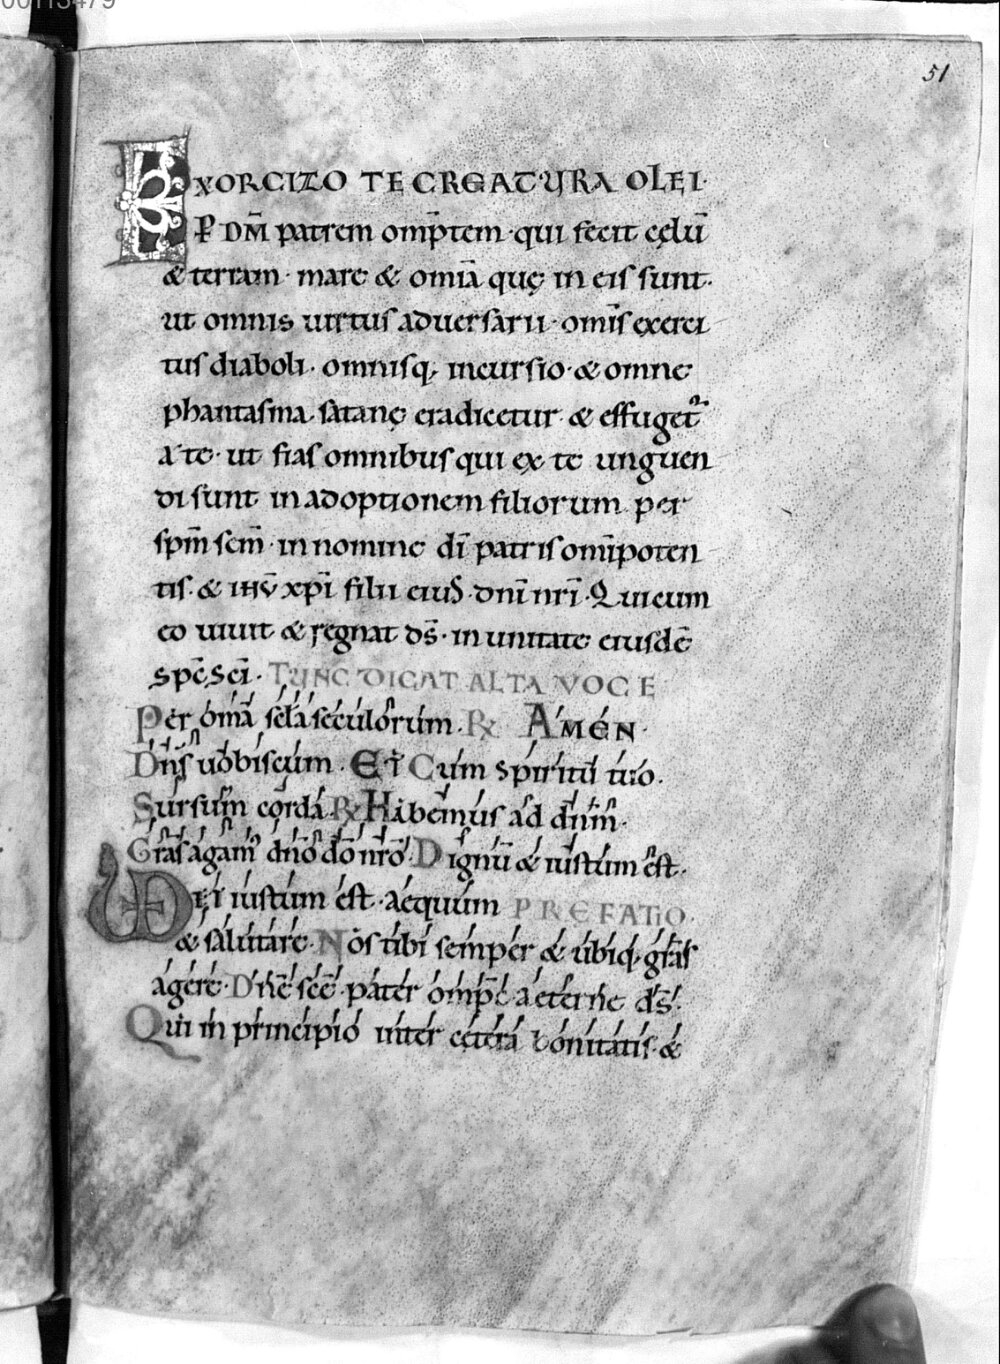 00113479
51
EXORCIZO TE CREATURA OLEI·
P̱ DM̄ patrem omp̄tem· qui fecit cęlū
& terram· mare & omīa quę in eis sunt·
ut omnis uirtus aduersarii· om̄is exerci
tus diaboli· omnisq; incursio· & omne
phantasma satanę eradicetur & effuget᷑
a te· ut fias omnibus qui ex te unguen
di sunt in adoptionem filiorum per
sp̄m sc̄m· in nomine dī patris om̄ipoten
tis· & ihū xp̄i filii eius dn̄i nr̄i· Qui cum
eo uiuit & regnat ds̄· in unitate eiusdē
sp̄c sc̄i· TUNC DICAT ALTA VOCE
Per om̄a sc̄la seculorum· ℞ AMEN·
Dn̄s uobiscum· ET Cum spiritu tuo·
Sursum corda ℞ Habemus ad dn̄m·
Gr̄as agam᷒ dn̄o dō nr̄o· Dignū & iustum est·
VERE iustum est· aequum PREFATIO·
& salutare· Nos tibi semper & ubiq; gr̄as
agere· Dn̄e sc̄e· pater omp̄s aeterne ds̄·
Qui in principio inter cętera bonitatis· &